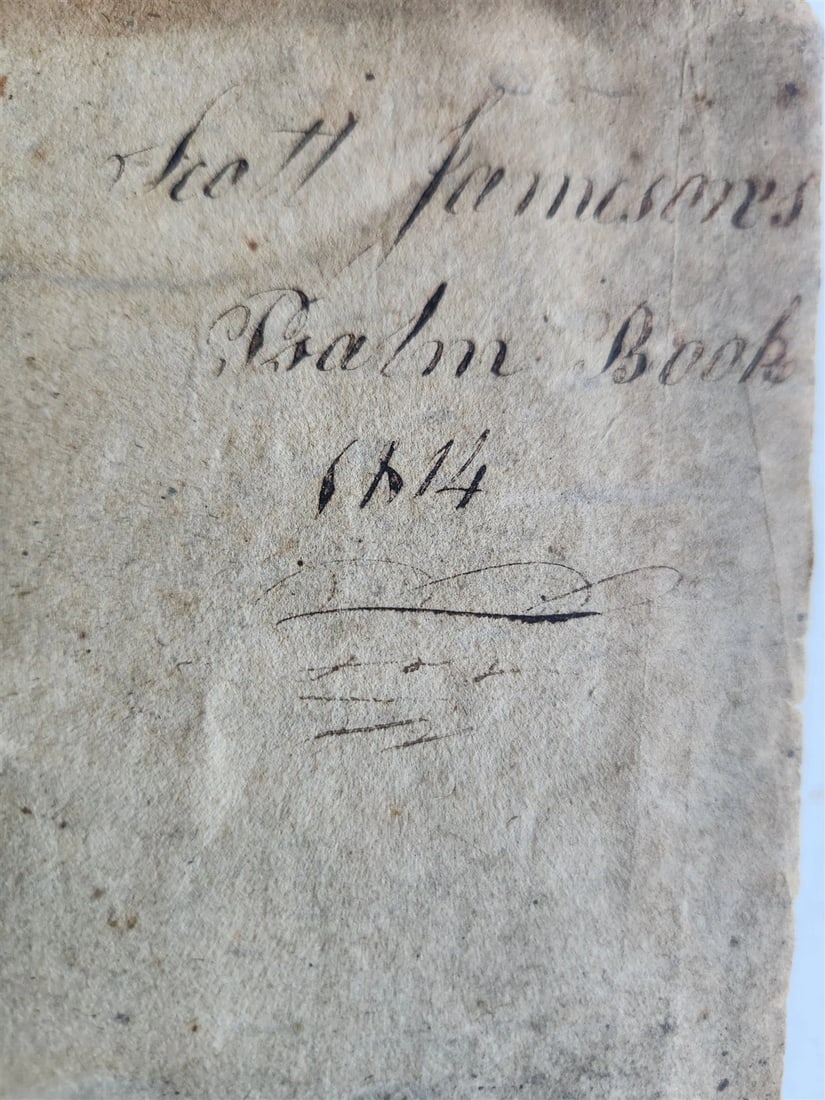 Scott Jamesons
Psalm Book
1814